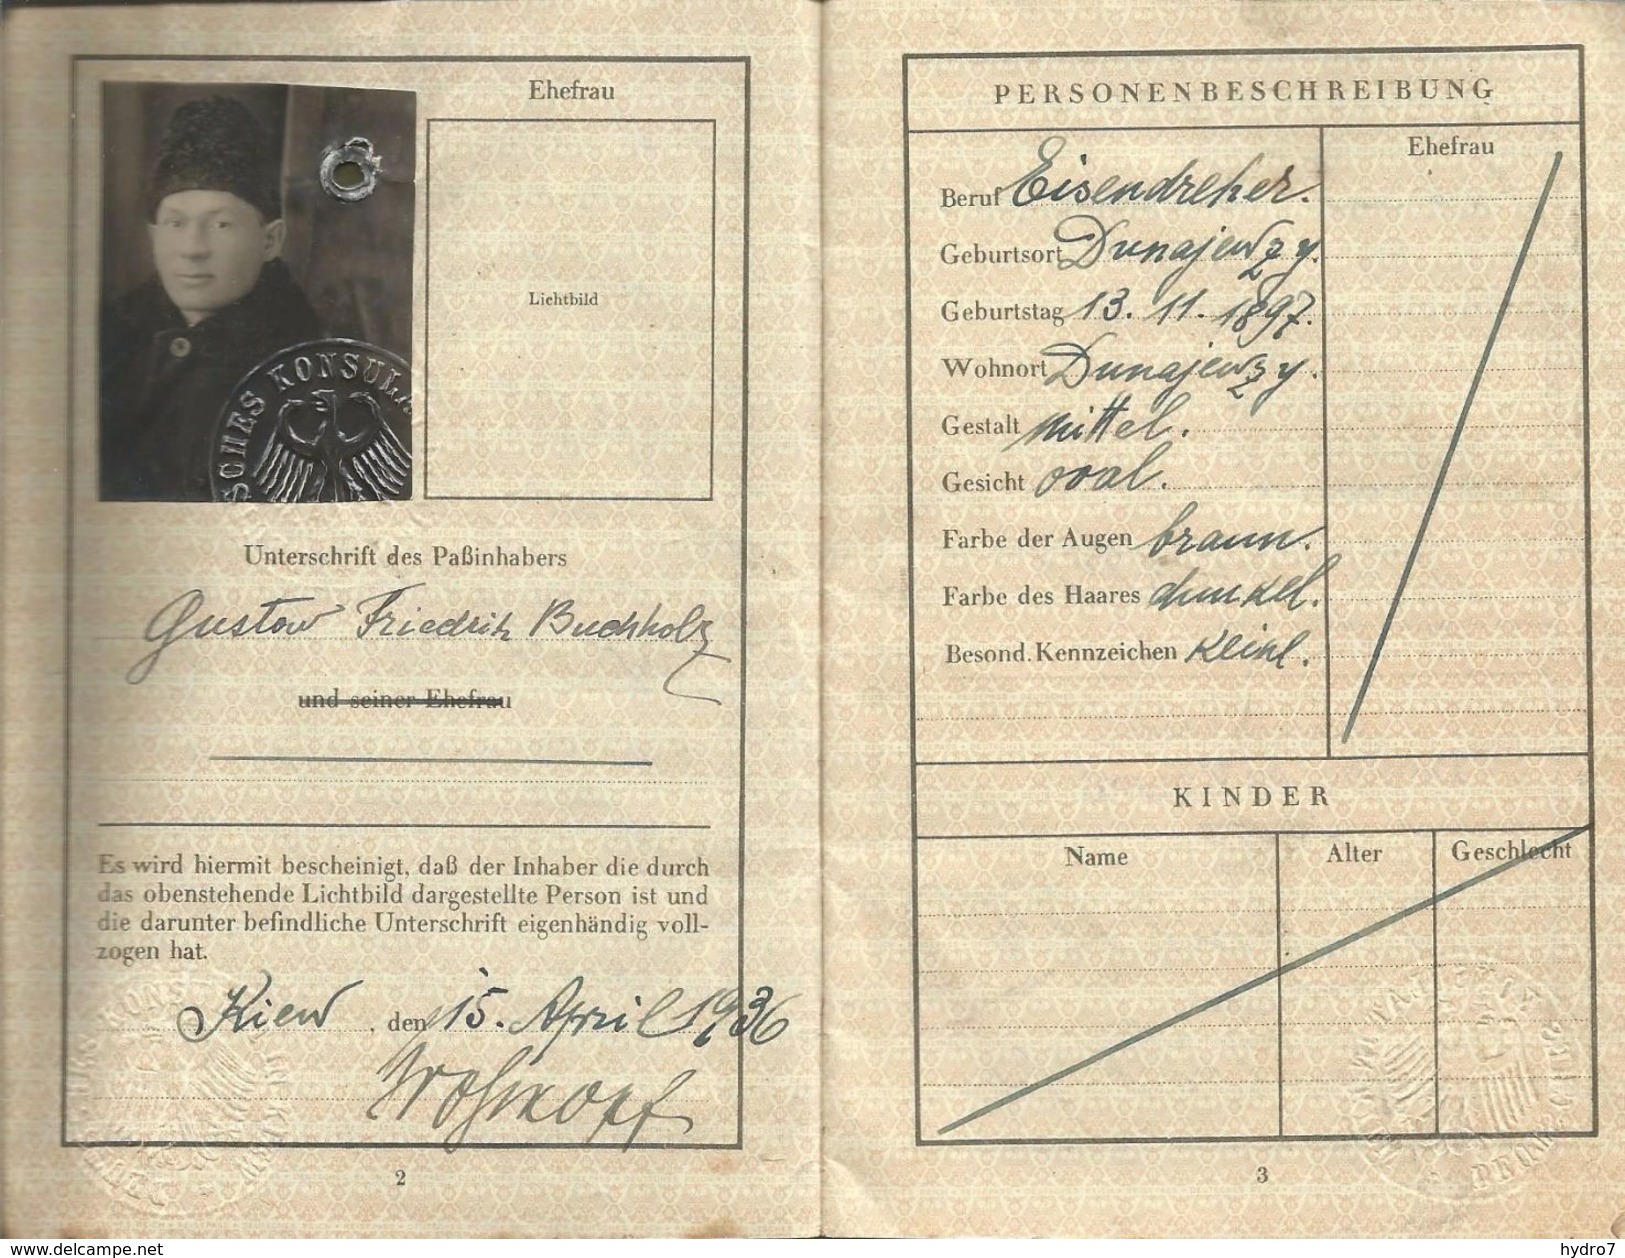 Ehefrau
Lichtbild
SCHES KONSULA
Unterschrift des Paßinhabers
Gustav Friedrich Buchholz
und seiner Ehefrau
Es wird hiermit bescheinigt, daß der Inhaber die durch
das obenstehende Lichtbild dargestellte Person ist und
die darunter befindliche Unterschrift eigenhändig voll-
zogen hat.
Kiew, den 15. April 1936
2
PERSONENBESCHREIBUNG
Ehefrau
Beruf Eisendreher.
Geburtsort Dunajewzy.
Geburtstag 13. 11. 1897.
Wohnort Dunajewzy.
Gestalt mittel.
Gesicht oval.
Farbe der Augen braun.
Farbe des Haares dunkel.
Besond. Kennzeichen keine.
KINDER
Name Alter Geschlecht
3
www.delcampe.net
hydro7